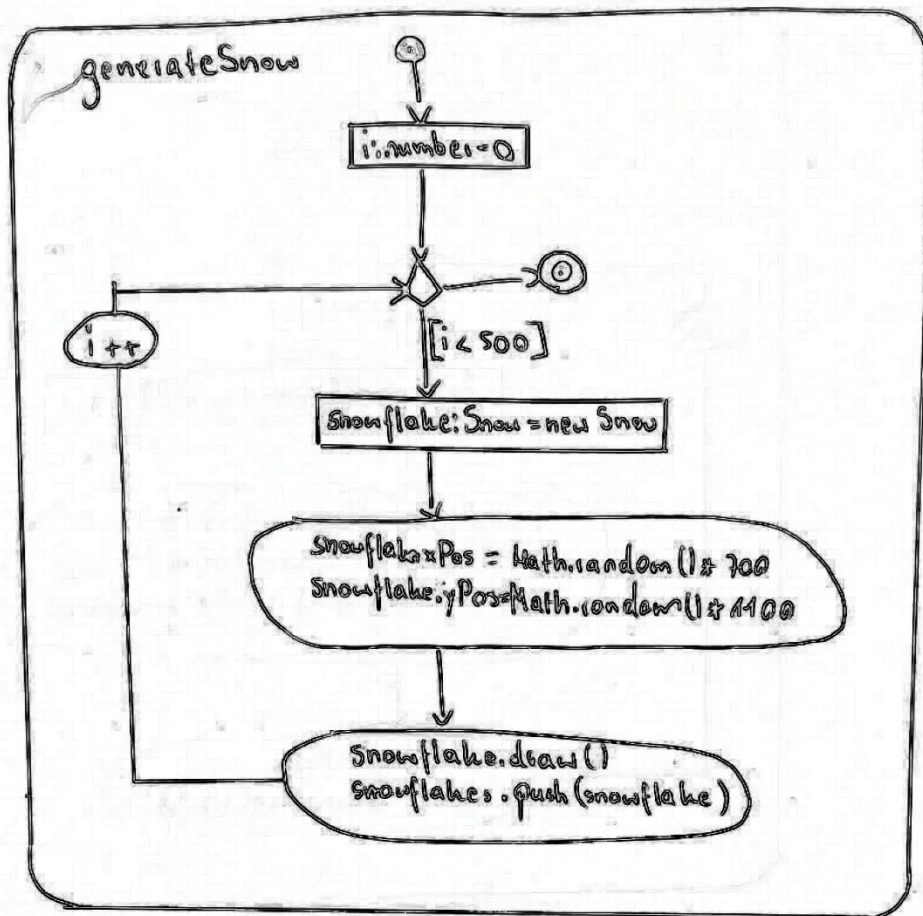 generateSnow
i:number=0
[i < 500]
i++
snowflake:Snow=new Snow
snowflake.xPos = Math.random()* 700
snowflake.yPos=Math.random()* 1100
snowflake.draw()
snowflakes.push(snowflake)